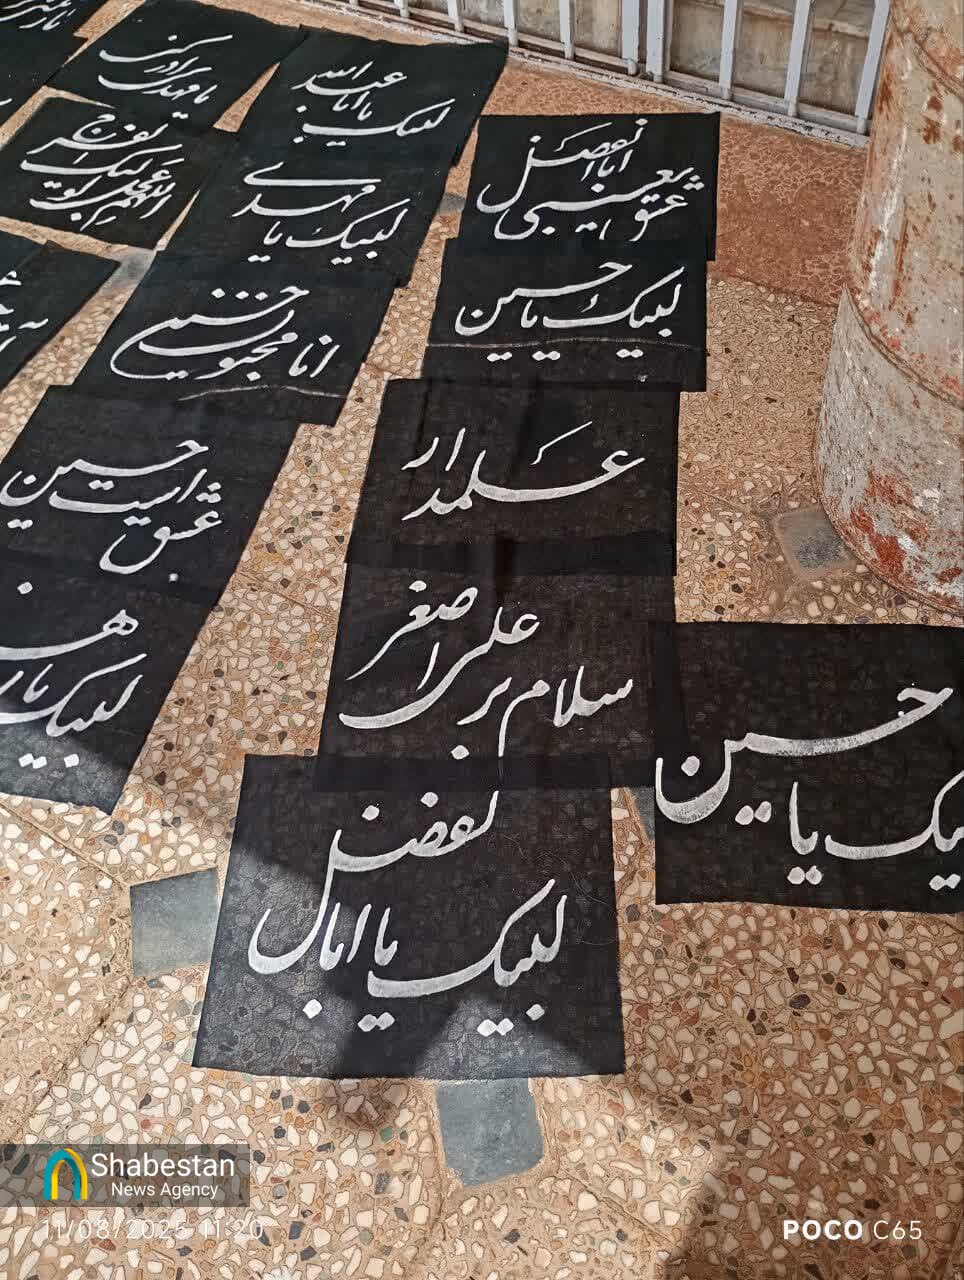 یا مهدی
لبیک
یا ابا
عبدالله
لبیک یا
مهدی
عشق یعنی
اباالفضل
اللهم عجل
لولیک
الفرج
لبیک یا حسین
انا مجنون
الحسین
علمدار
عشق
است حسین
سلام بر
علی اصغر
لبیک یا
یک یا
حسین
لبیک یا ابال
لفضل
Shabestan
News Agency
11/08/2025 11:20
POCO C65